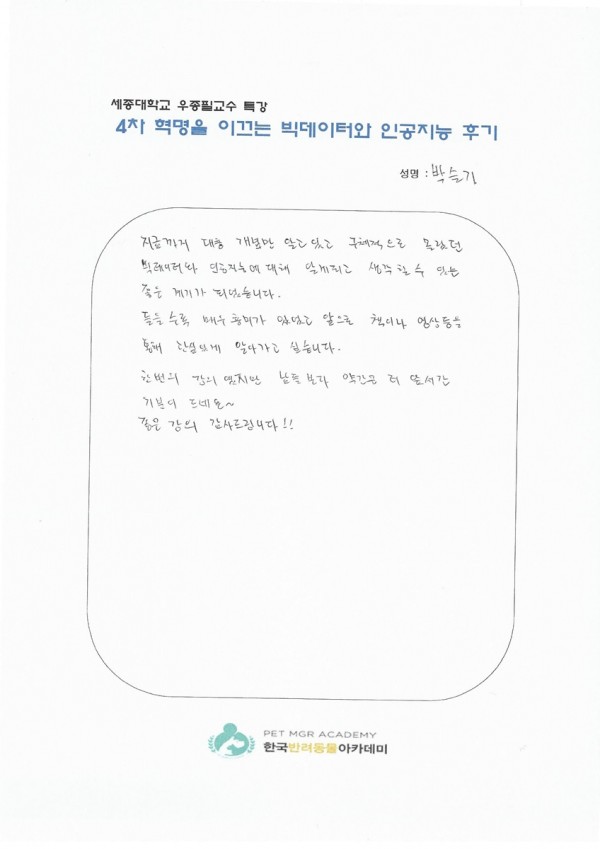 세종대학교 우종필교수 특강
4차 혁명을 이끄는 빅데이터와 인공지능 후기
성명 : 박슬기
지금까지 대충 개념만 알고 있고 구체적으로 몰랐던
빅데이터와 인공지능에 대해 알게되고 생각할 수 있는
좋은 계기가 되었습니다.
들을수록 매우 흥미가 있었고 앞으로 책이나 영상등을
통해 관심있게 알아가고 싶습니다.
한번의 강의 였지만 남들보다 약간은 더 앞서간
기분이 드네요~
좋은 강의 감사드립니다!!
PET MGR ACADEMY
한국반려동물아카데미